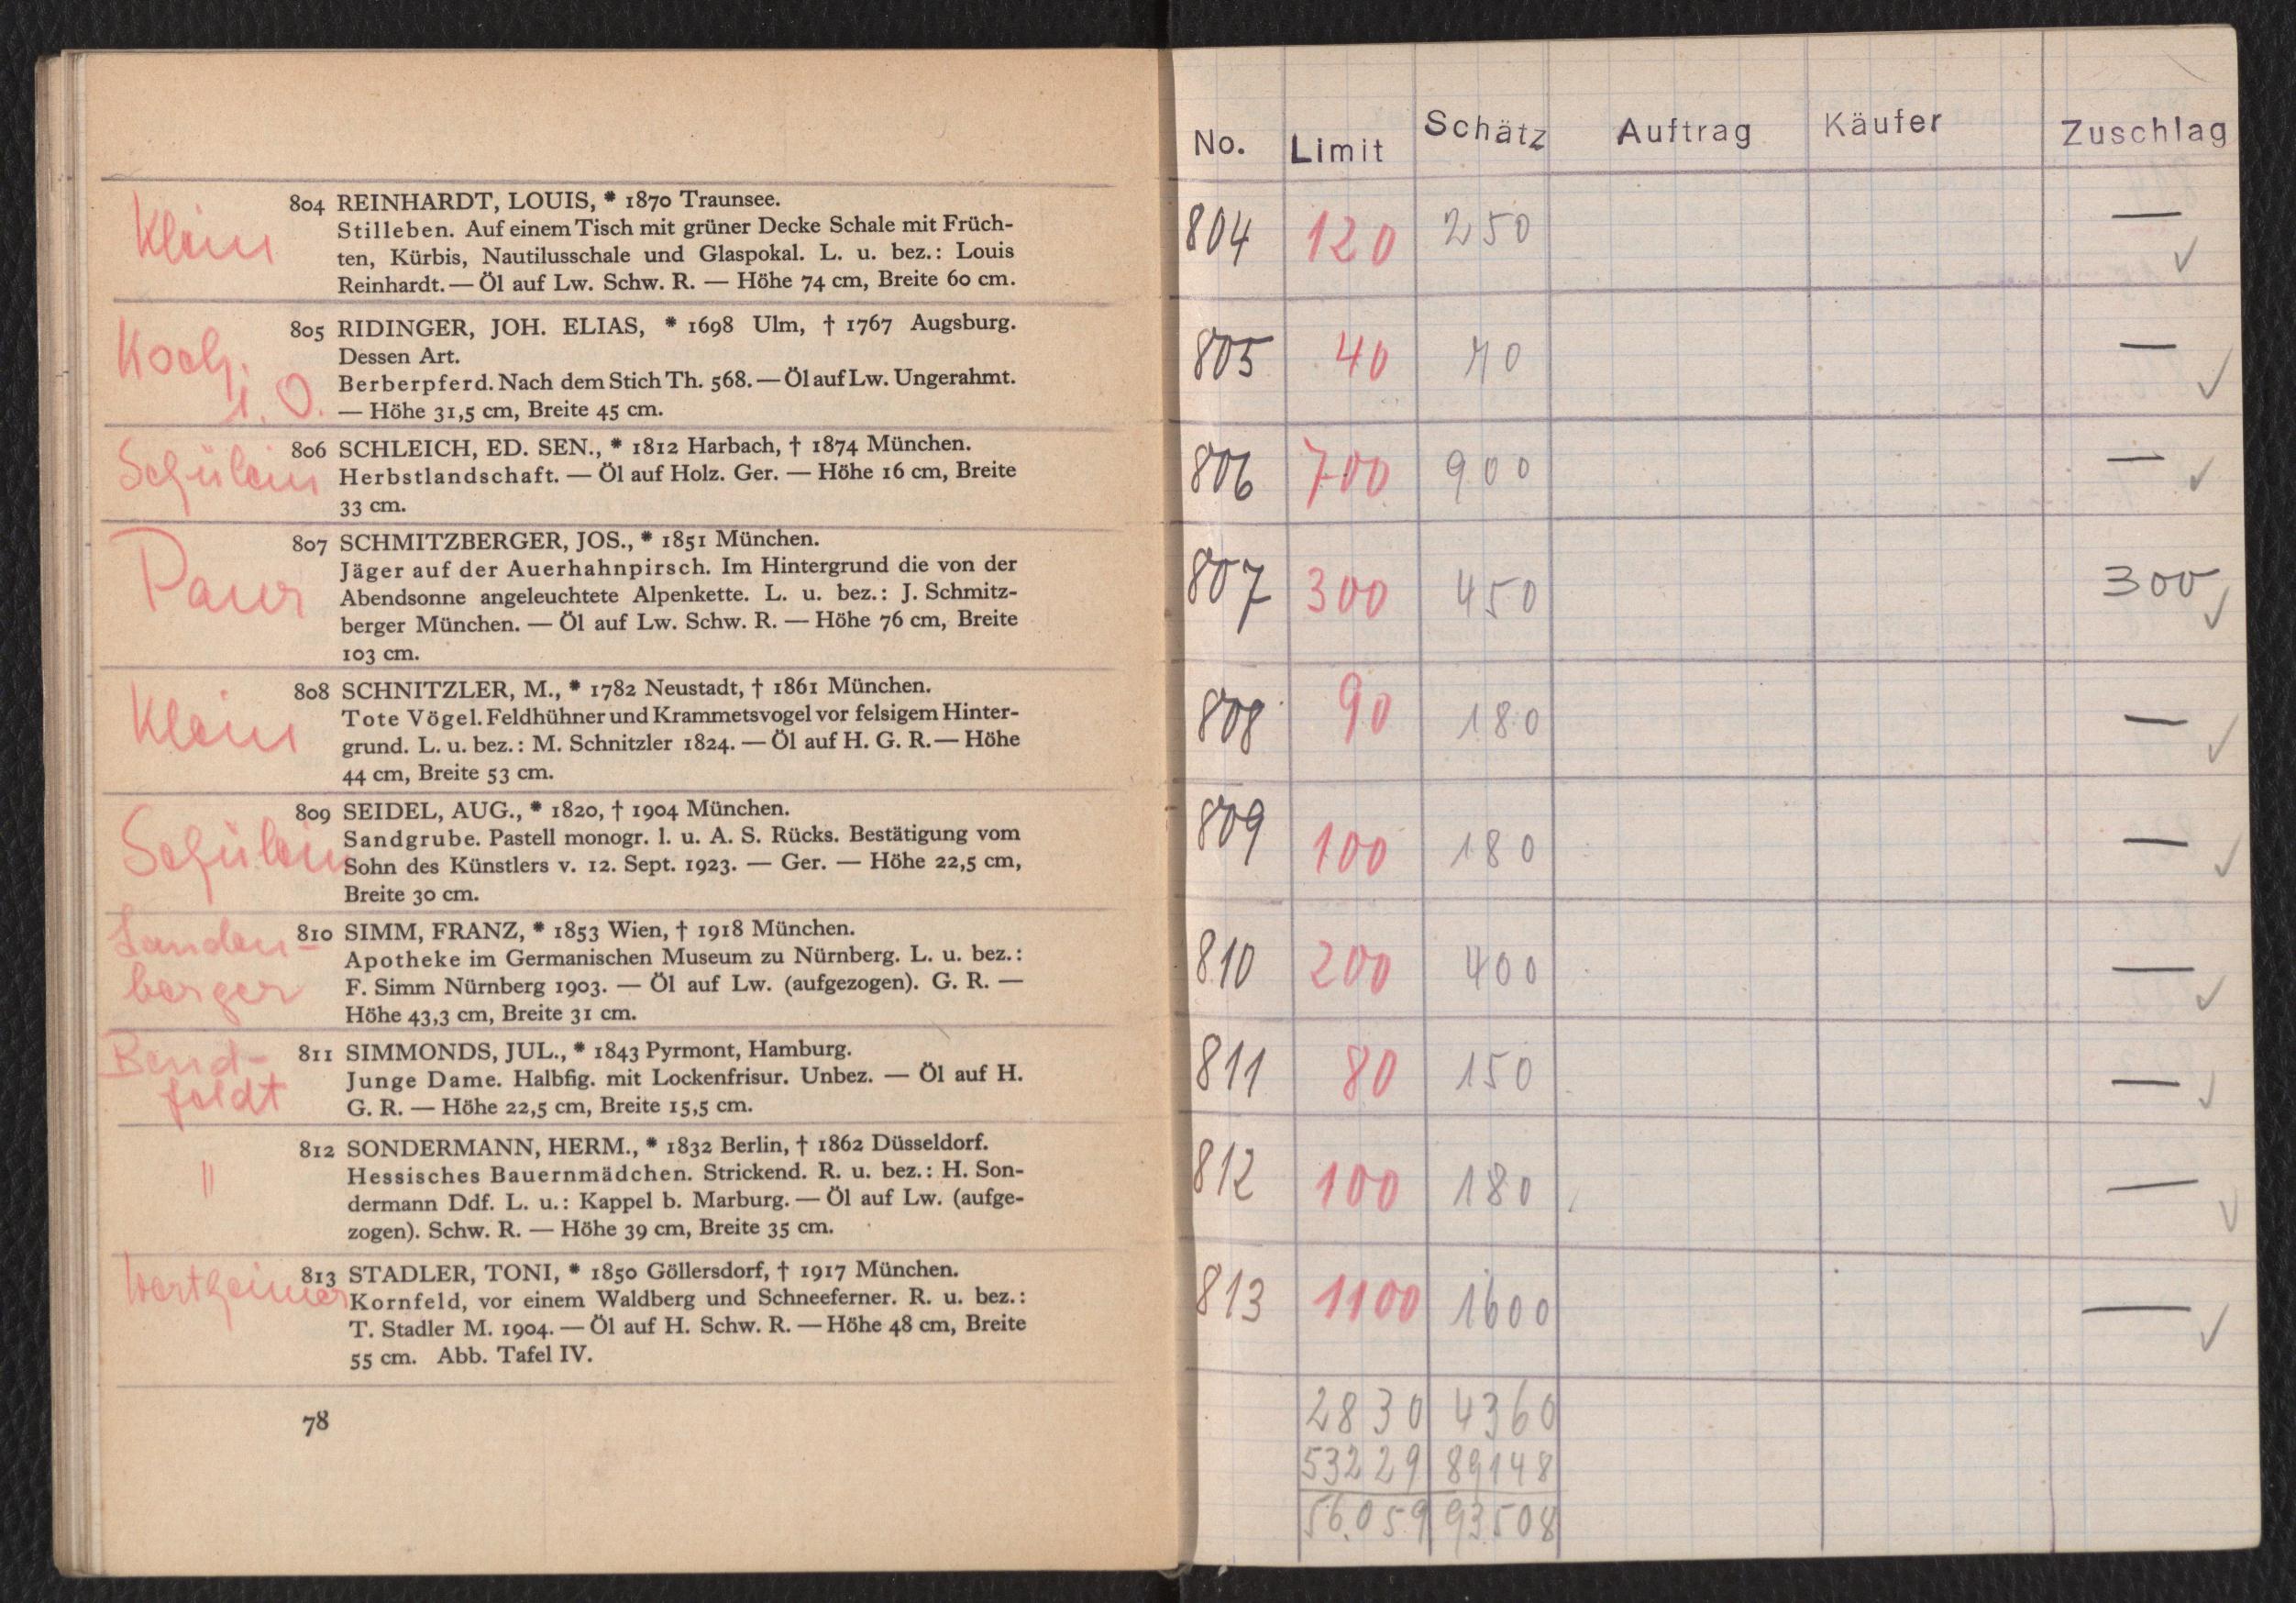 Klein
804 REINHARDT, LOUIS, * 1870 Traunsee.
Stilleben. Auf einem Tisch mit grüner Decke Schale mit Früch-
ten, Kürbis, Nautilusschale und Glaspokal. L. u. bez.: Louis
Reinhardt. — Öl auf Lw. Schw. R. — Höhe 74 cm, Breite 60 cm.
Koch.
805 RIDINGER, JOH. ELIAS, * 1698 Ulm, † 1767 Augsburg.
Dessen Art.
Berberpferd. Nach dem Stich Th. 568. — Öl auf Lw. Ungerahmt.
— Höhe 31,5 cm, Breite 45 cm.
Schülein
806 SCHLEICH, ED. SEN., * 1812 Harbach, † 1874 München.
Herbstlandschaft. — Öl auf Holz. Ger. — Höhe 16 cm, Breite
33 cm.
Paur
807 SCHMITZBERGER, JOS., * 1851 München.
Jäger auf der Auerhahnpirsch. Im Hintergrund die von der
Abendsonne angeleuchtete Alpenkette. L. u. bez.: J. Schmitz-
berger München. — Öl auf Lw. Schw. R. — Höhe 76 cm, Breite
103 cm.
Klein
808 SCHNITZLER, M., * 1782 Neustadt, † 1861 München.
Tote Vögel. Feldhühner und Krammetsvogel vor felsigem Hinter-
grund. L. u. bez.: M. Schnitzler 1824. — Öl auf H. G. R. — Höhe
44 cm, Breite 53 cm.
Schülein
809 SEIDEL, AUG., * 1820, † 1904 München.
Sandgrube. Pastell monogr. l. u. A. S. Rücks. Bestätigung vom
Sohn des Künstlers v. 12. Sept. 1923. — Ger. — Höhe 22,5 cm,
Breite 30 cm.
Landen-
berger
810 SIMM, FRANZ, * 1853 Wien, † 1918 München.
Apotheke im Germanischen Museum zu Nürnberg. L. u. bez.:
F. Simm Nürnberg 1903. — Öl auf Lw. (aufgezogen). G. R. —
Höhe 43,3 cm, Breite 31 cm.
Bend-
feldt
811 SIMMONDS, JUL., * 1843 Pyrmont, Hamburg.
Junge Dame. Halbfig. mit Lockenfrisur. Unbez. — Öl auf H.
G. R. — Höhe 22,5 cm, Breite 15,5 cm.
"
812 SONDERMANN, HERM., * 1832 Berlin, † 1862 Düsseldorf.
Hessisches Bauernmädchen. Strickend. R. u. bez.: H. Son-
dermann Ddf. L. u.: Kappel b. Marburg. — Öl auf Lw. (aufge-
zogen). Schw. R. — Höhe 39 cm, Breite 35 cm.
Wertheimer
813 STADLER, TONI, * 1850 Göllersdorf, † 1917 München.
Kornfeld, vor einem Waldberg und Schneeferner. R. u. bez.:
T. Stadler M. 1904. — Öl auf H. Schw. R. — Höhe 48 cm, Breite
55 cm. Abb. Tafel IV.
78
No. Limit Schätz Auftrag Käufer Zuschlag
804 120 250 — ✓
805 40 70 — ✓
806 700 900 — ✓
807 300 450 300 ✓
808 90 180 — ✓
809 100 180 — ✓
810 200 400 — ✓
811 80 150 — ✓
812 100 180 — ✓
813 1100 1600 — ✓
2830 4360
53229 89148
56.059 93508